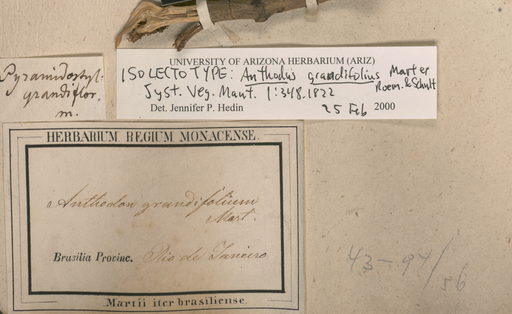 UNIVERSITY OF ARIZONA HERBARIUM (ARIZ)
ISOLECTOTYPE: Anthodus grandifolius Mart ex Roem. & Schult
Syst. Veg. Mant. 1:348.1822
Det. Jennifer P. Hedin 25 Feb 2000
Pyramidostyl.
grandiflor.
m.
HERBARIUM REGIUM MONACENSE.
Anthodon grandifolium
Mart.
Brasilia Provinc. Rio de Janeiro
Martii iter brasiliense.
43-94/56